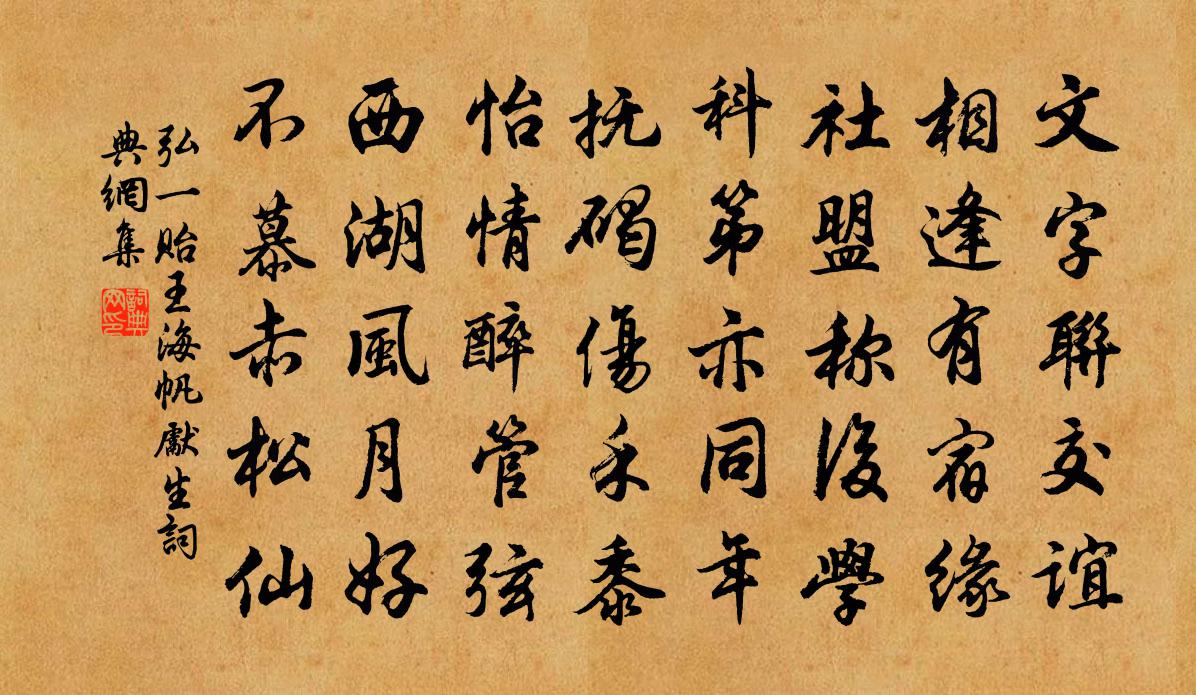 文字聯交誼
相逢有宿緣
社盟称後學
科第亦同年
抚碣傷禾黍
怡情醉管弦
西湖風月好
不慕赤松仙
弘一贻王海帆獻生詞
典網集
詞典
網印